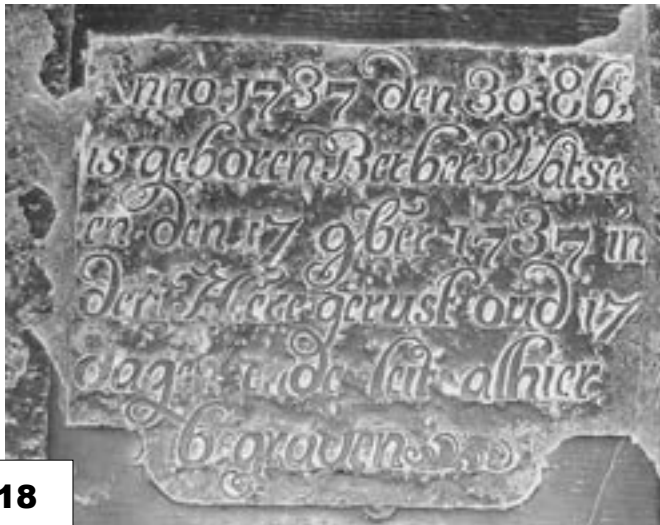 Anno 1737 den 30 8b
is geboren Berber Watses
en den 17 9ber 1737 in
den Heere gerust oud 17
dagen ende leit alhier
begraven
18